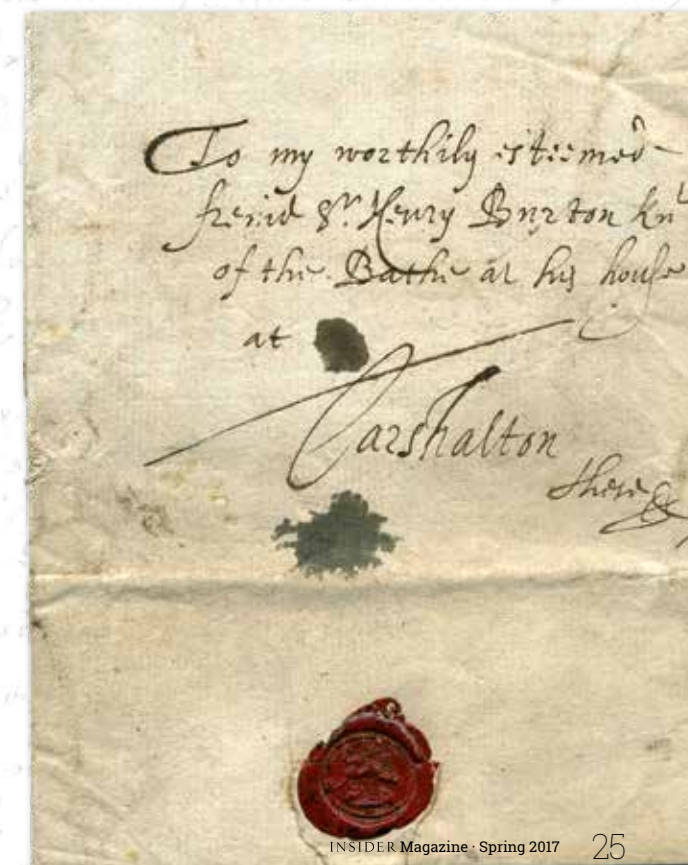 To my worthily esteemed
freind Sr. Henry Burton knt
of the Bathe at his house
at
Carshalton
there
INSIDER Magazine · Spring 2017 25